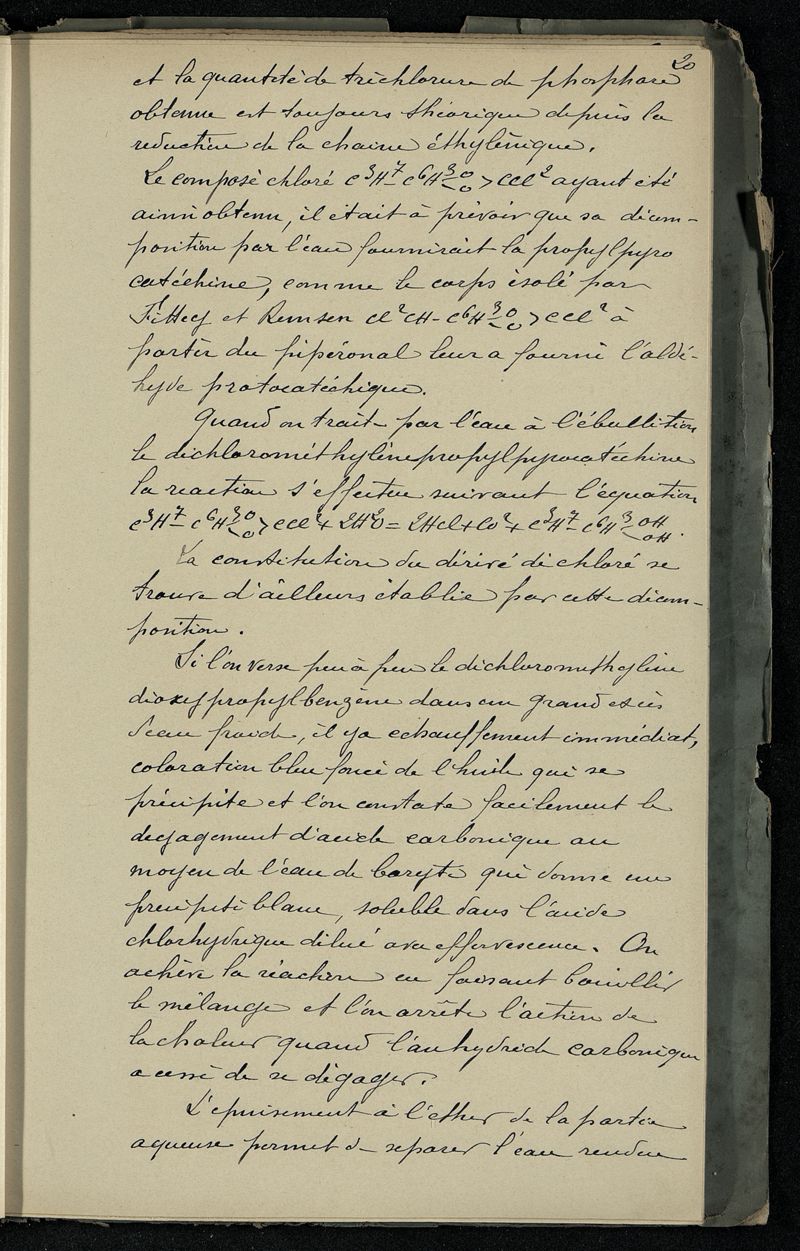 20
et la quantité de trichlorure de phosphore
obtenue est toujours théorique depuis la
reduction de la chaine éthylènique.
Le composé chloré C³H⁷-C⁶H³<O O>CCl² ayant été
ainsi obtenu, il était à prévoir que sa décom-
position par l'eau fournirait la propylpyro
catéchine, comme le corps isolé par
Fittig et Remsen Cl²CH-C⁶H³<O O>CCl² à
partir du pipéronal leur a fourni l'aldé-
hyde protocatéchique.
Quand on traite par l'eau à l'ébullition
le dichlorométhylènepropylpyrocatéchine
la reaction s'effectue suivant l'équation
C³H⁷-C⁶H³<O O>CCl² + 2H²O = 2HCl + CO² + C³H⁷-C⁶H³<OH OH.
La constitution du dérivé dichloré se
trouve d'ailleurs établie par cette décom-
position.
Si l'on verse peu à peu le dichloromethylène
dioxypropylbenzène dans un grand excès
d'eau froide, il y a echauffement immédiat,
coloration bleu foncé de l'huile qui se
précipite et l'on constate facilement le
degagement d'acide carbonique au
moyen de l'eau de baryte qui donne un
precipité blanc, soluble dans l'acide
chlorhydrique dilué avec effervescence. On
achève la réaction en faisant bouillir
le mélange et l'on arrête l'action de
la chaleur quand l'anhydride carbonique
a cessé de se dégager.
L'epuisement à l'ether de la partie
aqueuse permet de separer l'eau rendue